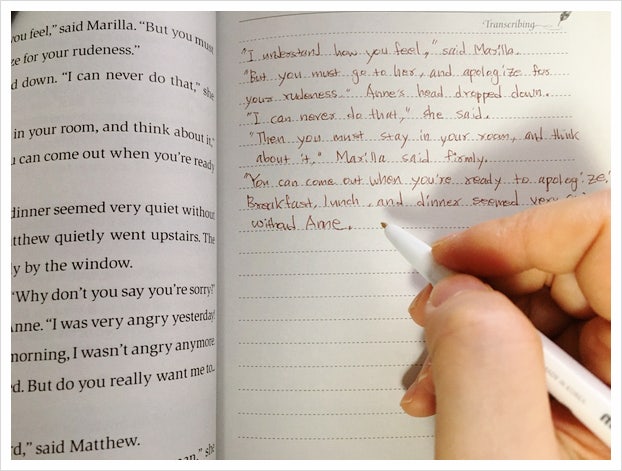 you feel," said Marilla. "But you must
ze for your rudeness."
d down. "I can never do that," she
in your room, and think about it,"
u can come out when you're ready
dinner seemed very quiet without
tthew quietly went upstairs. The
ly by the window.
"Why don't you say you're sorry?"
Anne. "I was very angry yesterday!
morning, I wasn't angry anymore
d. But do you really want me to
rd," said Matthew.
an," she
Transcribing
"I understand how you feel," said Marilla.
"But you must go to her, and apologize for
your rudeness." Anne's head dropped down.
"I can never do that," she said.
"Then you must stay in your room, and think
about it," Marilla said firmly.
"You can come out when you're ready to apologize."
Breakfast, lunch, and dinner seemed very
without Anne.